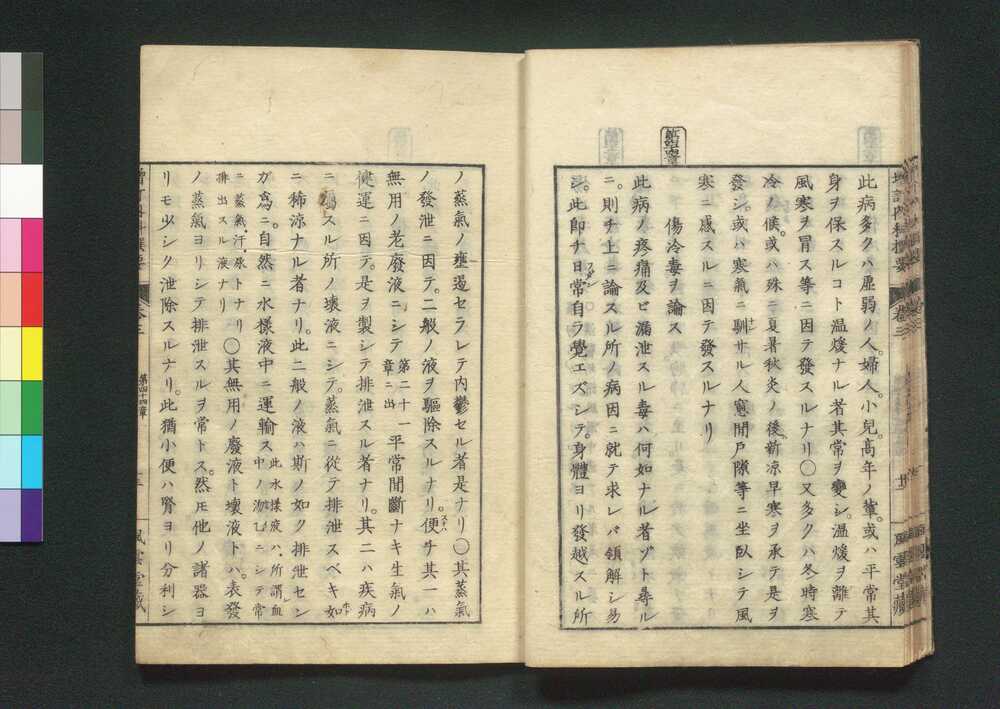 此病多クハ虛弱ノ人。婦人。小兒。高年ノ輩。或ハ平常其
身ヲ保スルコト温煖ナル者其常ヲ變シ。温煖ヲ離テ
風寒ヲ冒ス等ニ因テ發スルナリ〇又多クハ冬時寒
冷ノ候。或ハ殊ニ夏暑秋炎ノ後新凉早寒ヲ承テ是ヲ
發シ。或ハ寒氣ニ馴サル人窓間戸隙等ニ坐臥シテ風
寒ニ感スルニ因テ發スルナリ
傷冷毒ヲ論ス
此病ノ疼痛及ビ漏泄スル毒ハ何如ナル者ゾト尋ル
ニ。則チ上ニ論スル所ノ病因ニ就テ求レバ領解シ易
シ。此即チ日常自ラ覺エズシテ。身體ヨリ發越スル所
ノ蒸氣ノ壅遏セラレテ内鬱セル者是ナリ〇其蒸氣
ノ發泄ニ因テ。二般ノ液ヲ驅除スルナリ。便チ其一ハ
無用ノ老廢液ニシテ 第二十一章ニ出 平常間斷ナキ生氣ノ
健運ニ因テ。是ヲ製シテ排泄スル者ナリ。其二ハ疾病
ニ屬スル所ノ壞液ニシテ。蒸氣ニ從テ排泄スベキ如
ニ稀凉ナル者ナリ。此二般ノ液ハ斯ノ如ク排泄セン
ガ爲ニ。自然ニ水様液中ニ運輸ス 此水様液ハ。所謂血中ノ泑乜ノニシテ常
ニ蒸氣。汗。尿トナリテ排出スル液ナリ 〇其無用ノ廢液ト壞液トハ。表發
ノ蒸氣ヨリシテ排泄スルヲ常トス。然𪜈他ノ諸器ヨ
リモ少シク泄除スルナリ。此猶小便ハ腎ヨリ分利シ
卷三
第四十四章
風雲堂藏